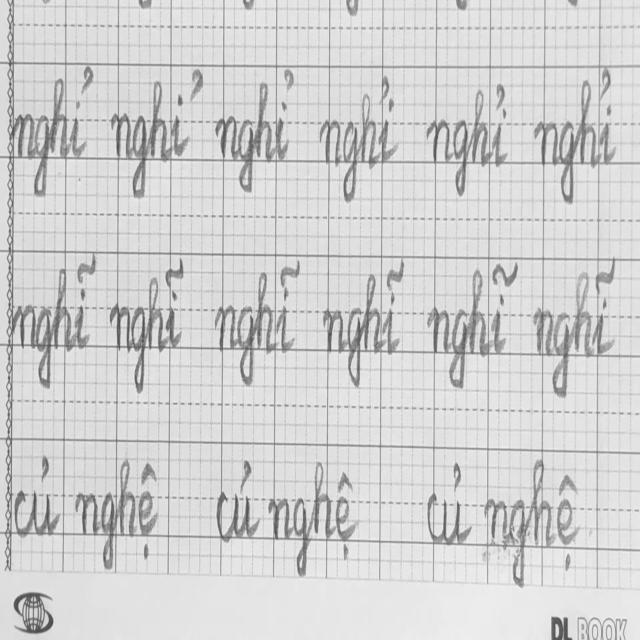 nghỉ nghỉ nghỉ nghỉ nghỉ nghỉ
nghĩ nghĩ nghĩ nghĩ nghĩ nghĩ
củ nghệ củ nghệ củ nghệ
DL BOOK